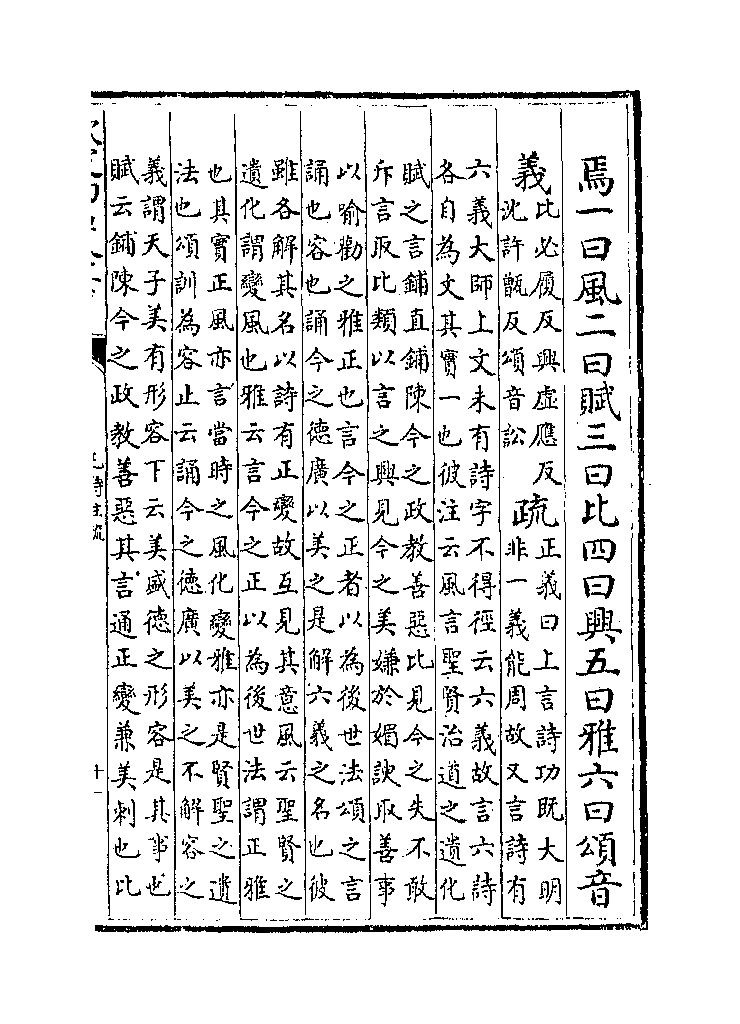 焉一曰風二曰賦三曰比四曰興五曰雅六曰頌音
義
比必履反興虛應反
沈許甑反頌音訟
疏
正義曰上言詩功既大明
非一義能周故又言詩有
六義大師上文未有詩字不得徑云六義故言六詩
各自為文其實一也彼注云風言聖賢治道之遺化
賦之言鋪直鋪陳今之政教善惡比見今之失不敢
斥言取比類以言之興見今之美嫌於媚諛取善事
以喻勸之雅正也言今之正者以為後世法頌之言
誦也容也誦今之德廣以美之是解六義之名也彼
雖各解其名以詩有正變故互見其意風云聖賢之
遺化謂變風也雅云言今之正以為後世法謂正雅
也其實正風亦言當時之風化變雅亦是賢聖之遺
法也頌訓為容止云誦今之德廣以美之不解容之
義謂天子美有形容下云美盛德之形容是其事也
賦云鋪陳今之政教善惡其言通正變兼美刺也比